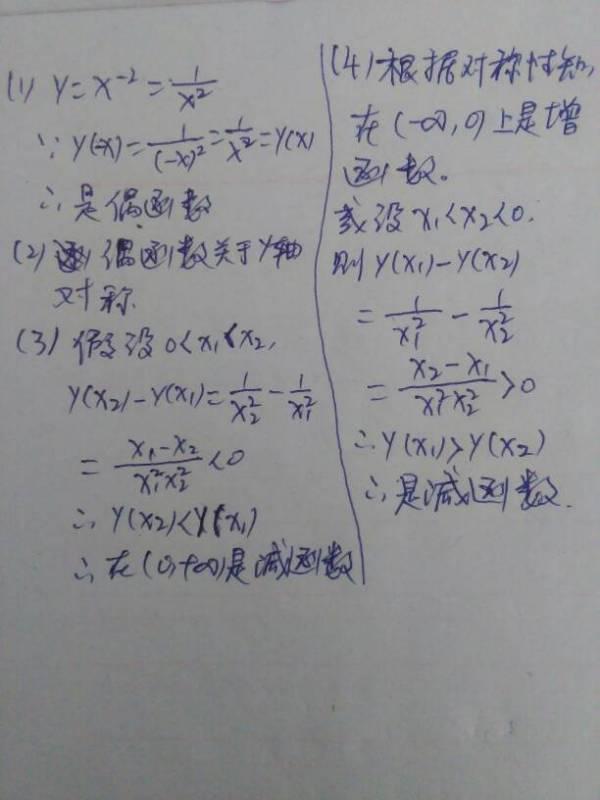 (1) y = x⁻² = 1/x²
∵ y(-x) = 1/(-x)² = 1/x² = y(x)
∴ 是偶函数
(2) 偶函数关于y轴
对称.
(3) 假设 0<x₁<x₂,
y(x₂)-y(x₁) = 1/x₂² - 1/x₁²
= (x₁-x₂)/(x₁²x₂²) <0
∴ y(x₂)<y(x₁)
∴ 在(0,+∞)是减函数
(4) 根据对称性知,
在(-∞,0)上是增
函数。
或设 x₁<x₂<0.
则 y(x₁)-y(x₂)
= 1/x₁² - 1/x₂²
= (x₂-x₁)/(x₁²x₂²) >0
∴ y(x₁)>y(x₂)
∴ 是减函数.